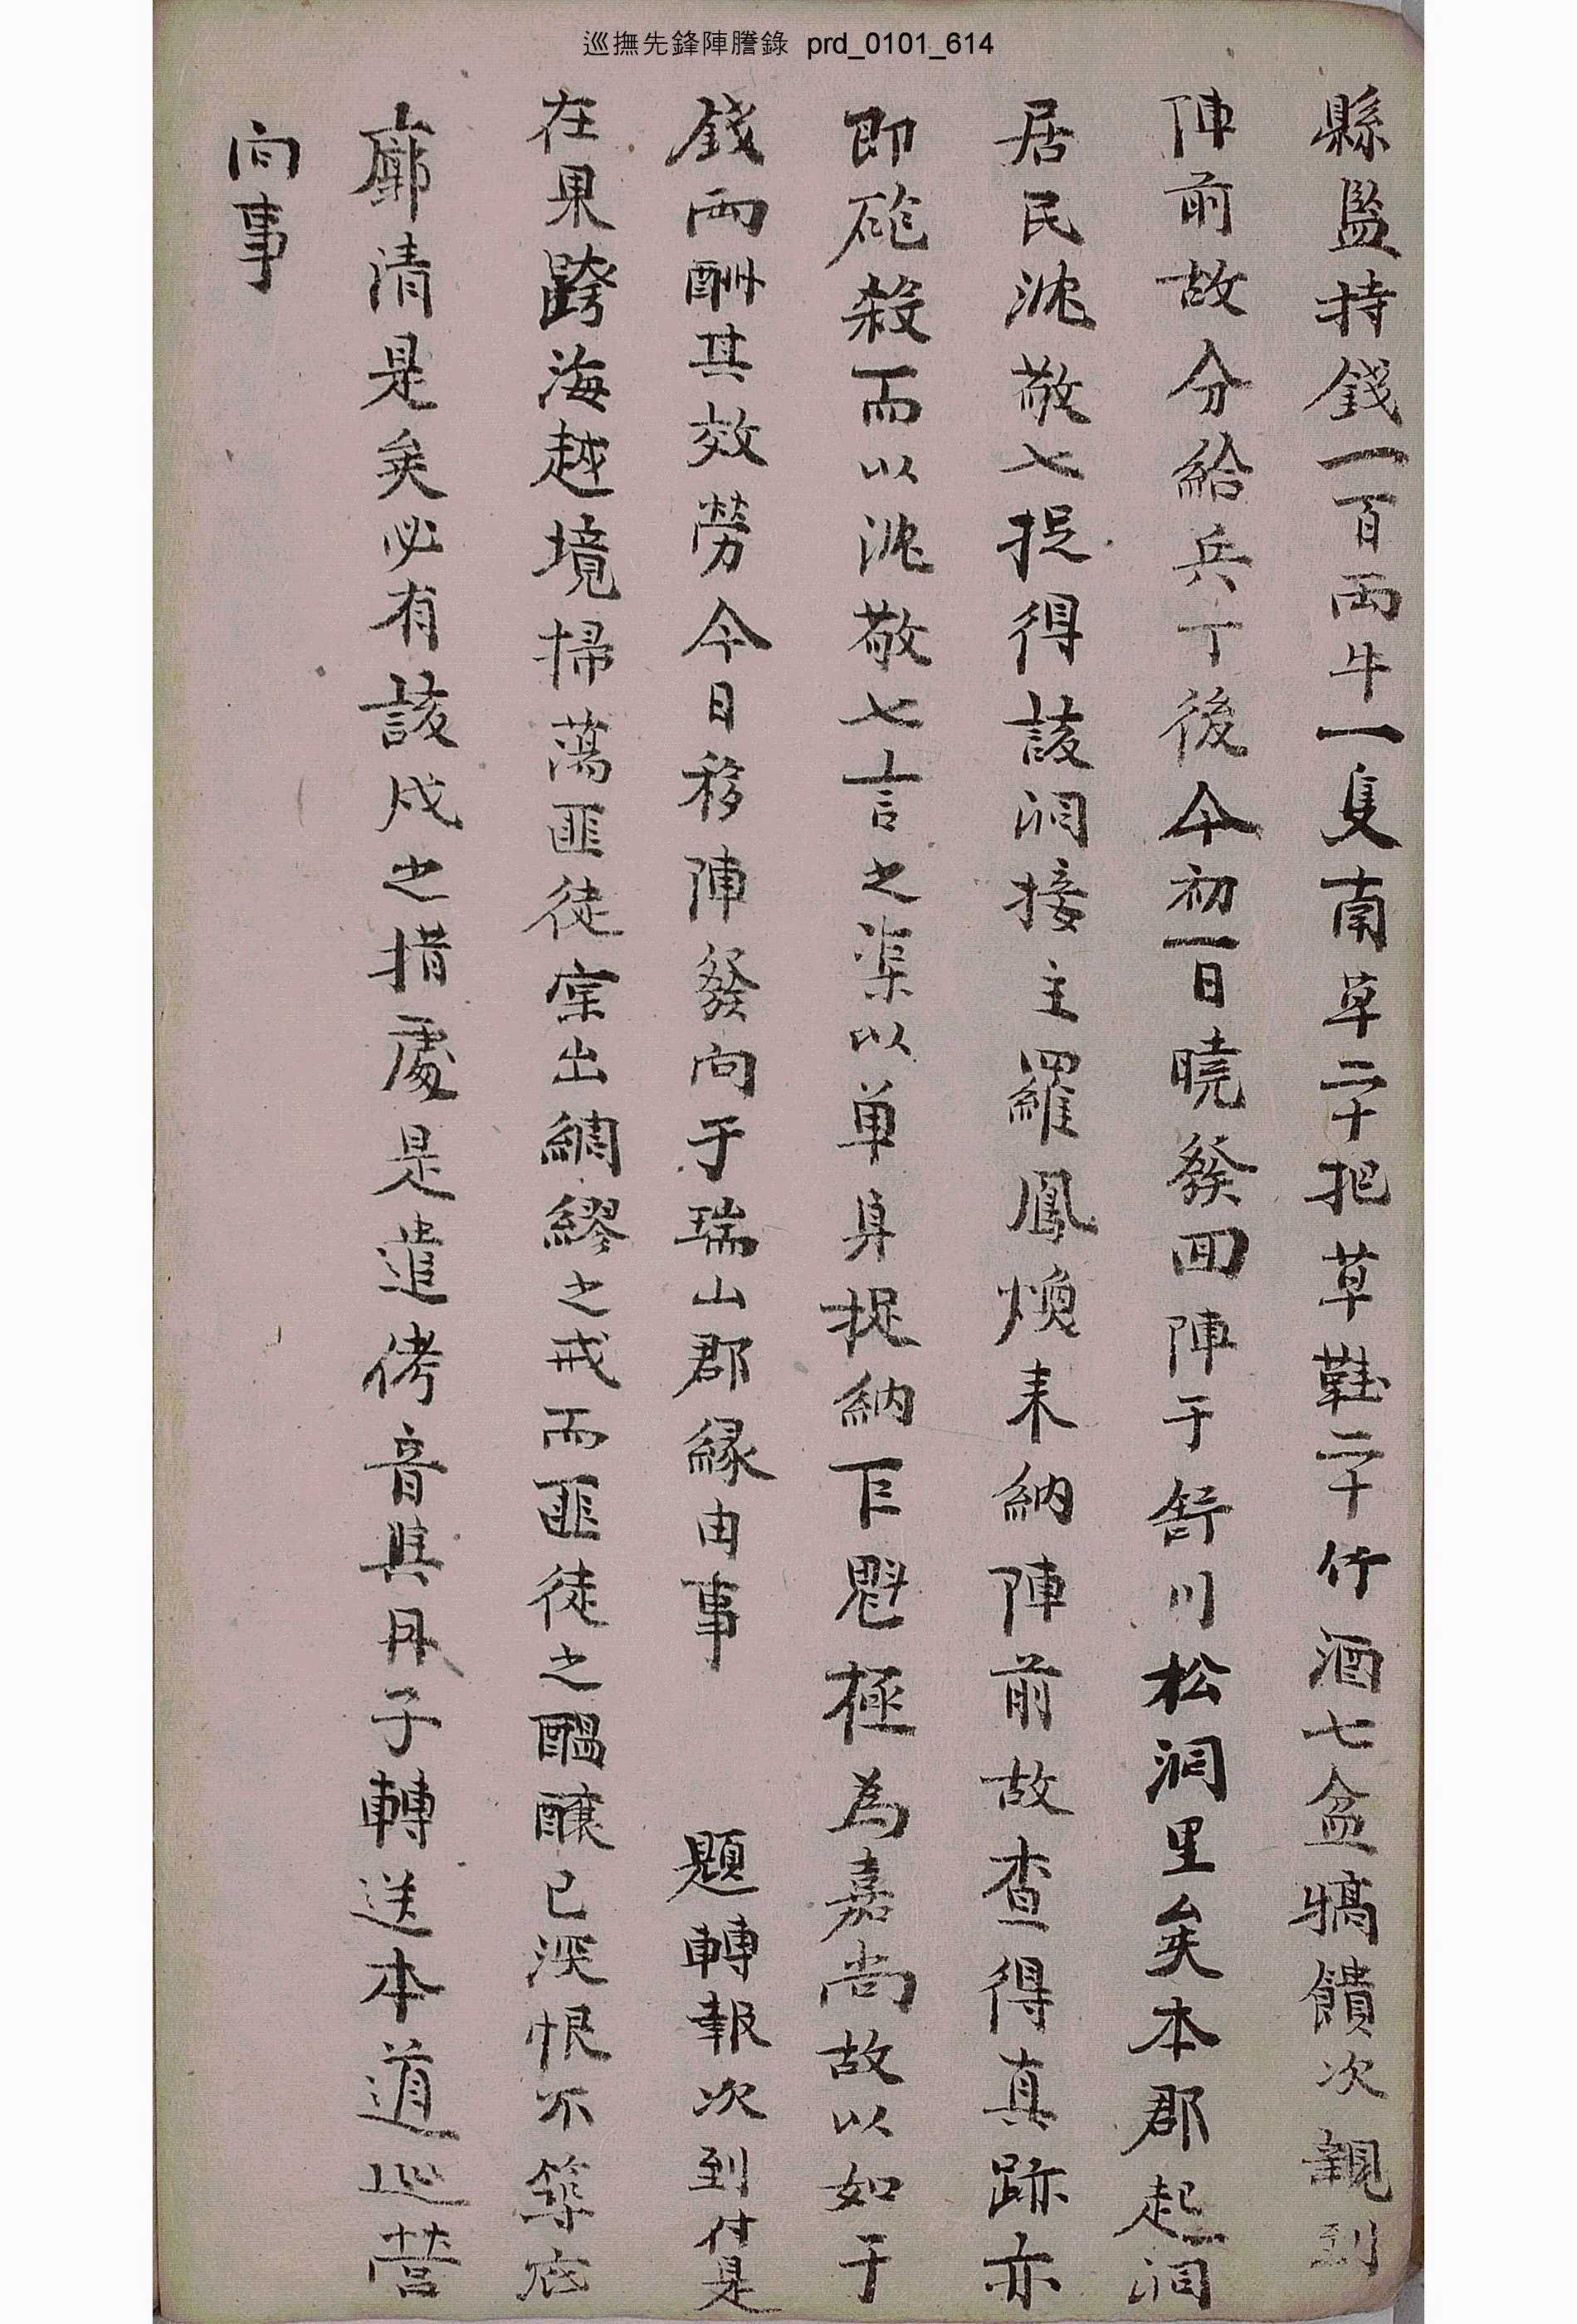 巡撫先鋒陣謄錄 prd_0101_614
縣監持錢一百兩牛一隻南草二十把草鞋二十竹酒七盆犒饋次親到
陣前故分給兵丁後今初一日曉發回陣于舒川松洞里矣本郡起洞
居民沈敬七捉得該洞接主羅鳳煥来納陣前故查得真跡亦
即砲殺而以沈敬七言之渠以单身捉納巨魁極為嘉尚故以如干
錢兩酬其效勞今日移陣發向于瑞山郡緣由事 題轉報次到付是
在果跨海越境掃蕩匪徒寔出綢繆之戒而匪徒之醞釀已深恨不等
廓清是矣必有該戍之措處是遣俦音其丹子轉送本道巡營
向事